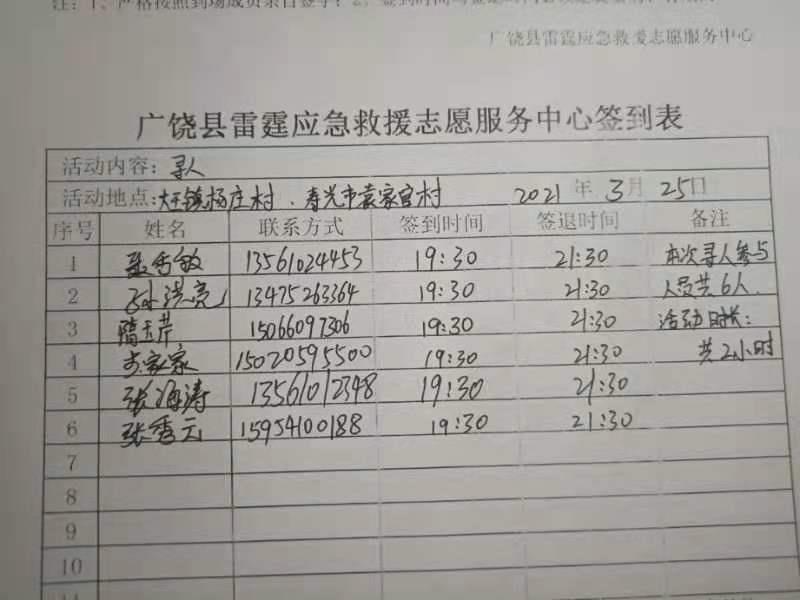 注：1、严格按照到场成员亲自签字；2、签到时间
广饶县雷霆应急救援志愿服务中心
广饶县雷霆应急救援志愿服务中心签到表
活动内容：寻人
活动地点：大王镇杨庄村、寿光市袁家官村 2021年3月25日
序号 姓名 联系方式 签到时间 签退时间 备注
1 聂秀敏 13561024453 19:30 21:30 本次寻人参与
2 孙洪亮 13475263364 19:30 21:30 人员共6人.
3 隋玉芹 15066097306 19:30 21:30 活动时长：
4 家家 15020595500 19:30 21:30 共2小时
5 张海涛 13561012348 19:30 21:30
6 张秀云 15954100188 19:30 21:30
7
8
9
10